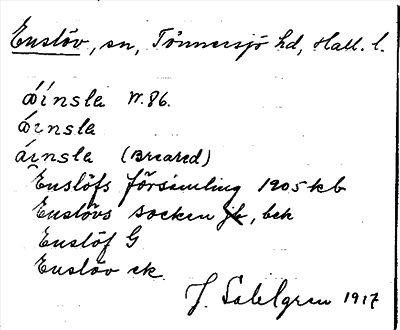 Enslöv, sn, Tönnersjö hd, Hall. l.
ǻínsla W. 86.
ǻinsla
ǻinsla (Breared)
Enslöfs församling 1905 kb
Enslövs socken jb, bek
Enslöf G
Enslöv ek.
J. Sahlgren 1917